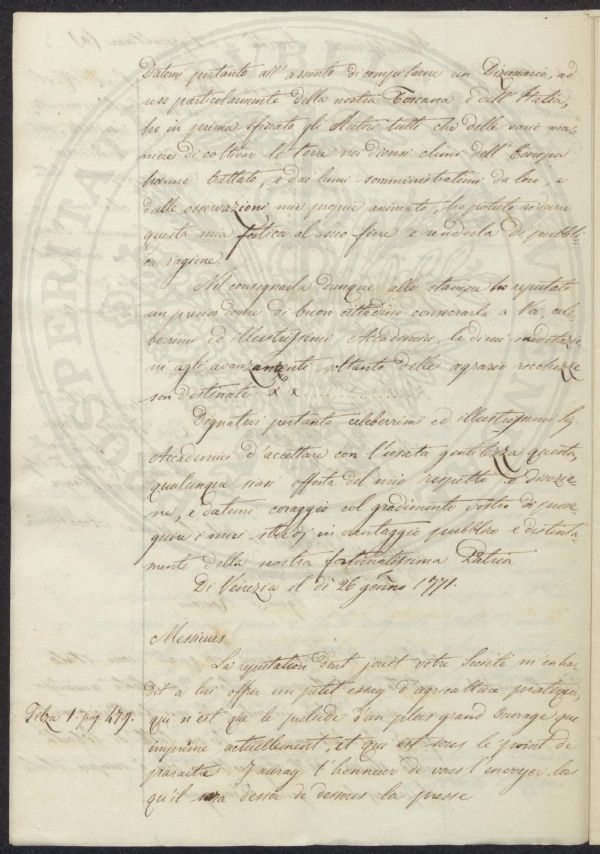 Datomi pertanto all'assunto di compilarne un Dizionario, ad
uso particolarmente della nostra Toscana e dell'Italia,
ho in prima spirato gli Autori tutti che delle varie ma-
niere di coltivar le terre nei diversi climi dell'Europa
hanno trattato, e dai lumi somministratimi da loro, e
dalle osservazioni mie proprie animato, ho potuto ridurre
questa mia fatica al suo fine e renderla di pubbli-
ca ragione
Nel consegnarla dunque alle stampe ho reputato
un preciso dovere di buon cittadino consecrarla a Voi, cele-
berrimi ed illustrissimi Accademici, le di cui meditazio-
ni agli avanzamenti soltanto delle agrarie ricchezze
son destinate x x
Degnatevi pertanto celeberrimi ed illustrissimi Sig.
Accademici d'accettare con l'usata gentilezza questa
qualunque siasi offerta del mio rispetto e divozio-
ne, e datemi coraggio col gradimento vostro di prose-
guire i miei studj in vantaggio pubblico e distinta-
mente della nostra fortunatissima Patria
Di Venezia il dì 26 genno 1771.
Messieurs
La reputation dont jouit votre Societé m'enhar
dit a lui offrir un petit essay d'agricolture pratique,
qui n'est que le prelude d'un plus grand ouvrage que
Filza 1. pag. 479.
imprime actuellement, et qui est sous le point de
paraitre J'auray l'honneur de vous l'envoyer, lors
qu'il sera dessor de dessous la presse